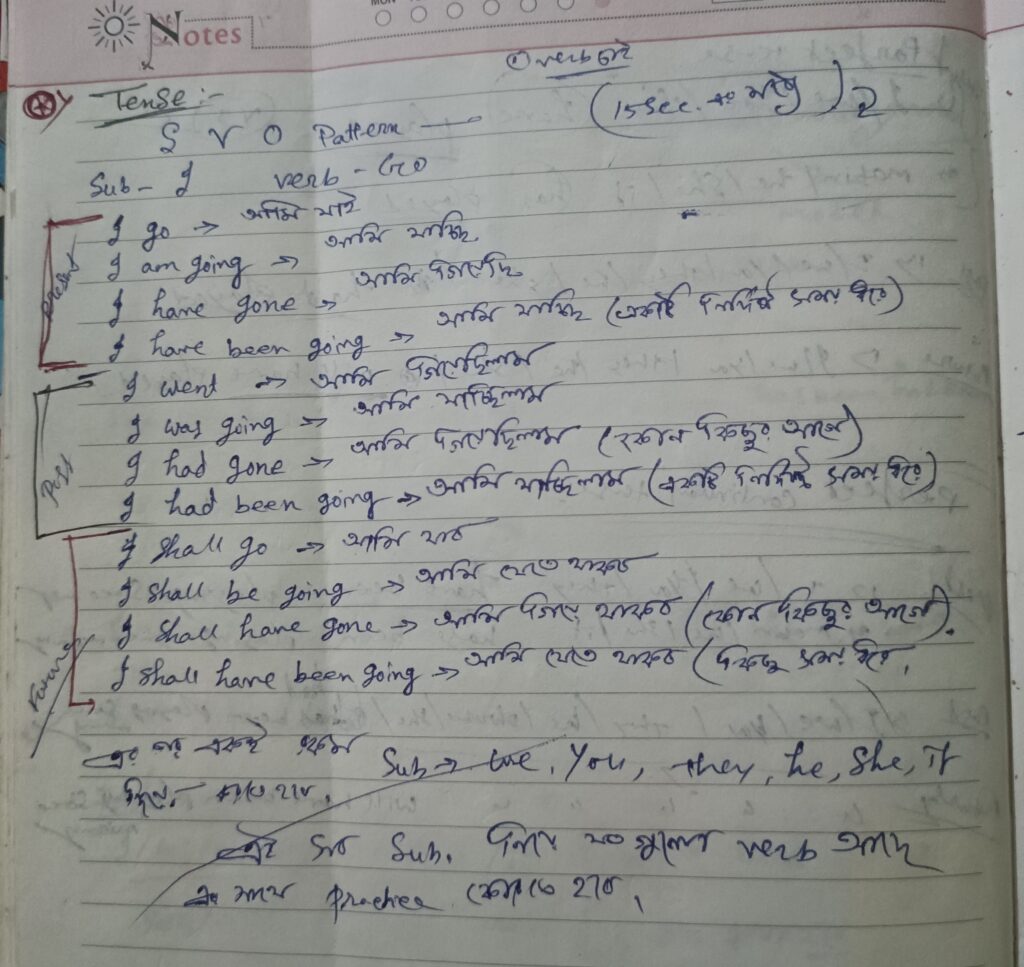 Notes
① verb চাই
Tense :-
(15 sec. এর মধ্যে) 2
S V O Pattern —
Sub - I verb - Go
Present
I go → আমি যাই
I am going → আমি যাচ্ছি
I have gone → আমি গিয়েছি
I have been going → আমি যাচ্ছি (একটি নির্দিষ্ট সময় ধরে)
Past
I went → আমি গিয়েছিলাম
I was going → আমি যাচ্ছিলাম
I had gone → আমি গিয়েছিলাম (কোন কিছুর আগে)
I had been going → আমি যাচ্ছিলাম (একটি নির্দিষ্ট সময় ধরে)
I shall go → আমি যাব
I shall be going → আমি যেতে থাকব
I shall have gone → আমি গিয়ে থাকব (কোন কিছুর আগে).
I shall have been going → আমি যেতে থাকব (কিছু সময় ধরে,
এর পর একই রকম Sub → We, You, they, he, She, it
দিয়ে হবে,
এই সব Sub. দিয়ে যত গুলো verb আছে
এর সাথে practice করতে হবে,